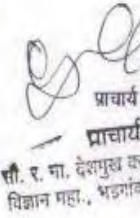 प्राचार्य
प्राचार्य
सौ. र. ना. देशमुख
विज्ञान महा., भडगांव